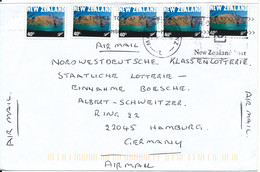 NEW ZEALAND NEW ZEALAND NEW ZEALAND NEW ZEALAND NEW ZEALAND
40c 40c 40c 40c 40c
AIR MAIL
New Zealand Post
NORDWESTDEUTSCHE KLASSENLOTTERIE
STAATLICHE LOTTERIE –
EINNAHME BOESCHE
ALBERT-SCHWEITZER.
RING 22
22045 HAMBURG.
GERMANY
AIRMAIL
AIR MAIL.
AIR MAIL.